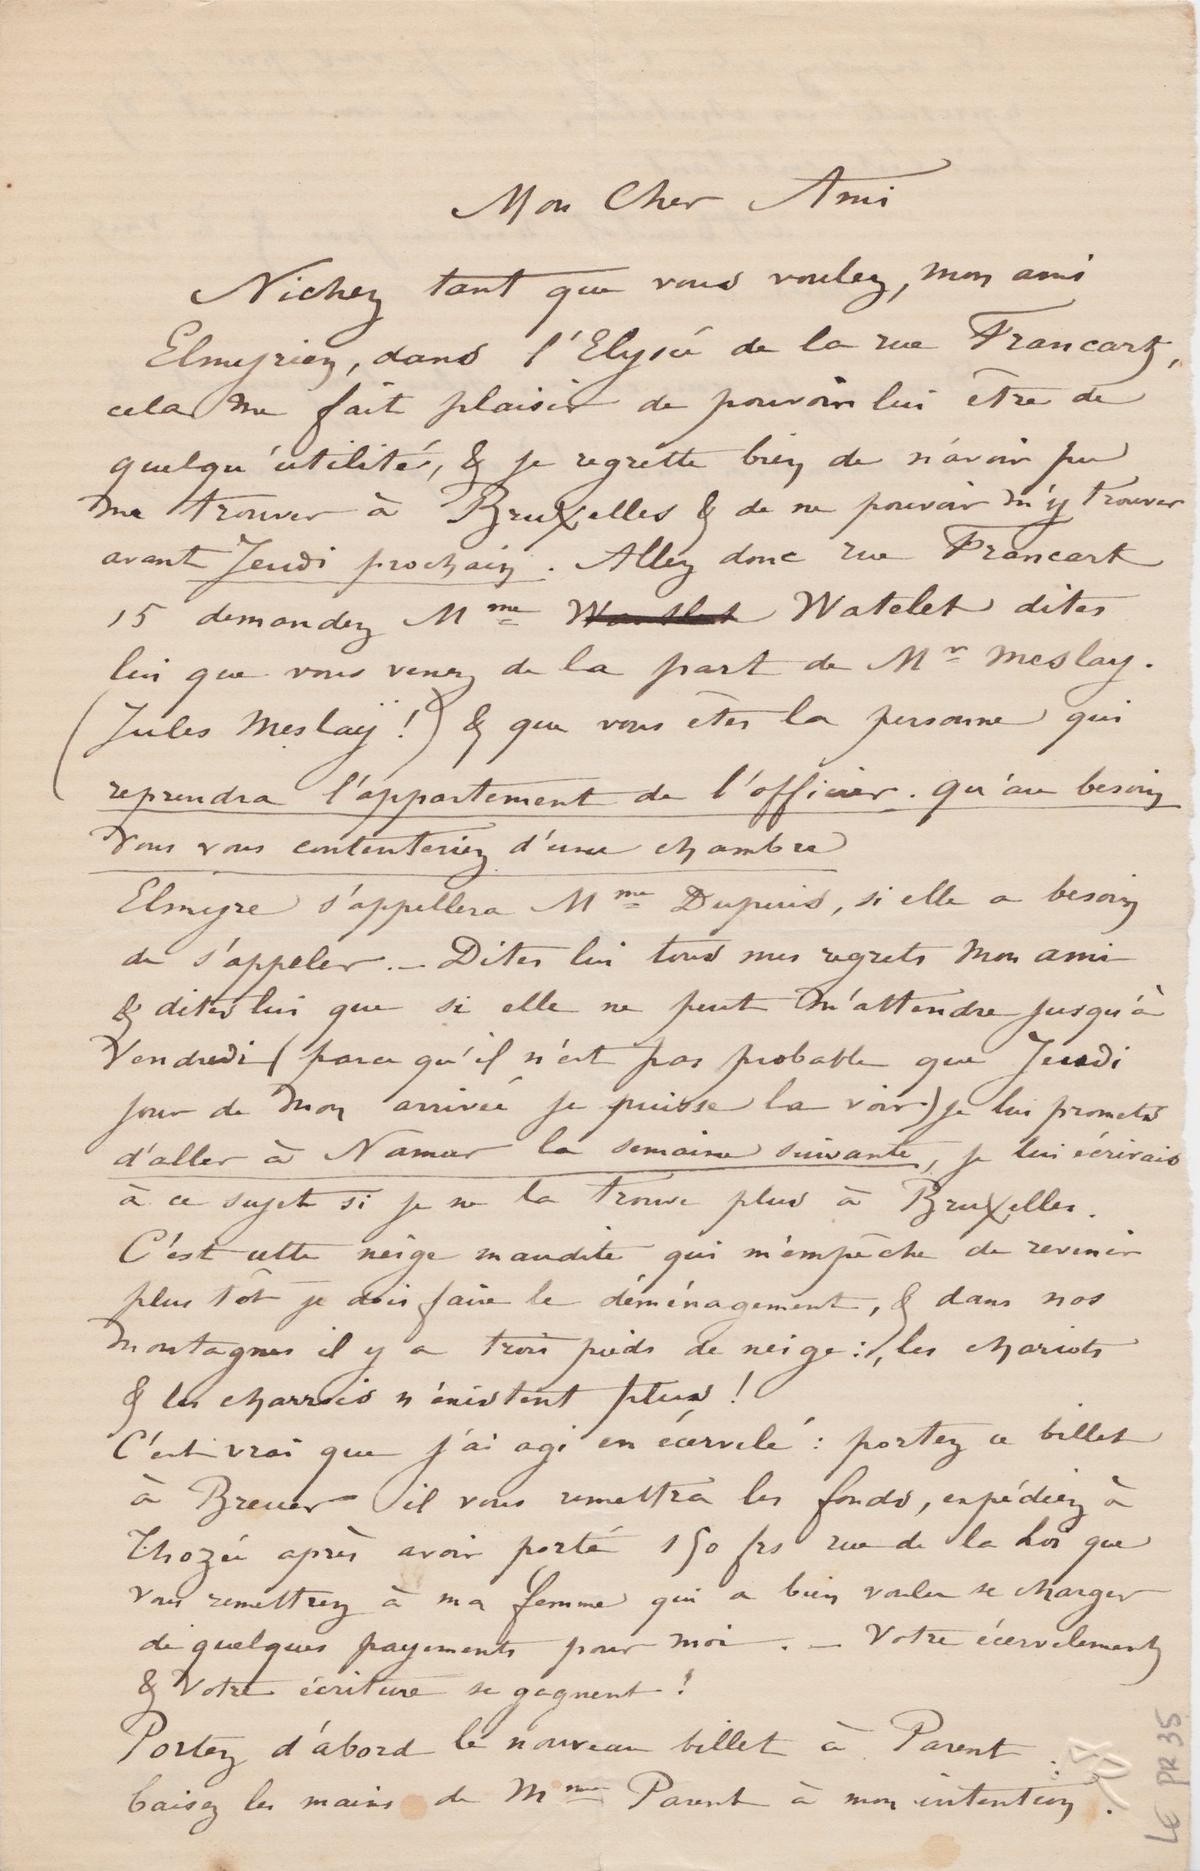 Mon Cher Ami
Nichez tant que vous voulez, mon ami
Elmyrien, dans l'Elysée de la rue Francart,
cela me fait plaisir de pouvoir lui être de
quelqu'utilité, & je regrette bien de n'avoir pu
me trouver à Bruxelles & de ne pouvoir m'y trouver
avant Jeudi prochain. Allez donc rue Francart
15 demandez Mme Watelet dites
lui que vous venez de la part de Mr Meslay.
(Jules Meslaÿ !) & que vous êtes la personne qui
reprendra l'appartement de l'officier. qu'au besoin
vous vous contenteriez d'une chambre
Elmyre s'appellera Mme Dupuis, si elle a besoin
de s'appeler. — Dites lui tous mes regrets mon ami
& dites lui que si elle ne peut m'attendre jusqu'à
Vendredi (parce qu'il n'est pas probable que Jeudi
jour de mon arrivée je puisse la voir) je lui promets
d'aller à Namur la semaine suivante, je lui écrirais
à ce sujet si je ne la trouve plus à Bruxelles.
C'est cette neige maudite qui m'empêche de revenir
plus tôt je dois faire le déménagement, & dans nos
montagnes il y a trois pieds de neige :, les chariots
& les charrois n'existent plus !
C'est vrai que j'ai agi en écervelé : portez ce billet
à Breuer il vous remettra les fonds, expédiez à
Thozée après avoir porté 150 frs rue de la Loi que
vous remettrez à ma femme qui a bien voulu se charger
de quelques payements pour moi. — Votre écervelement
& Votre écriture se gagnent !
Portez d'abord le nouveau billet à Parent.
baisez les mains de Mme Parent à mon intention.
LE PR 35